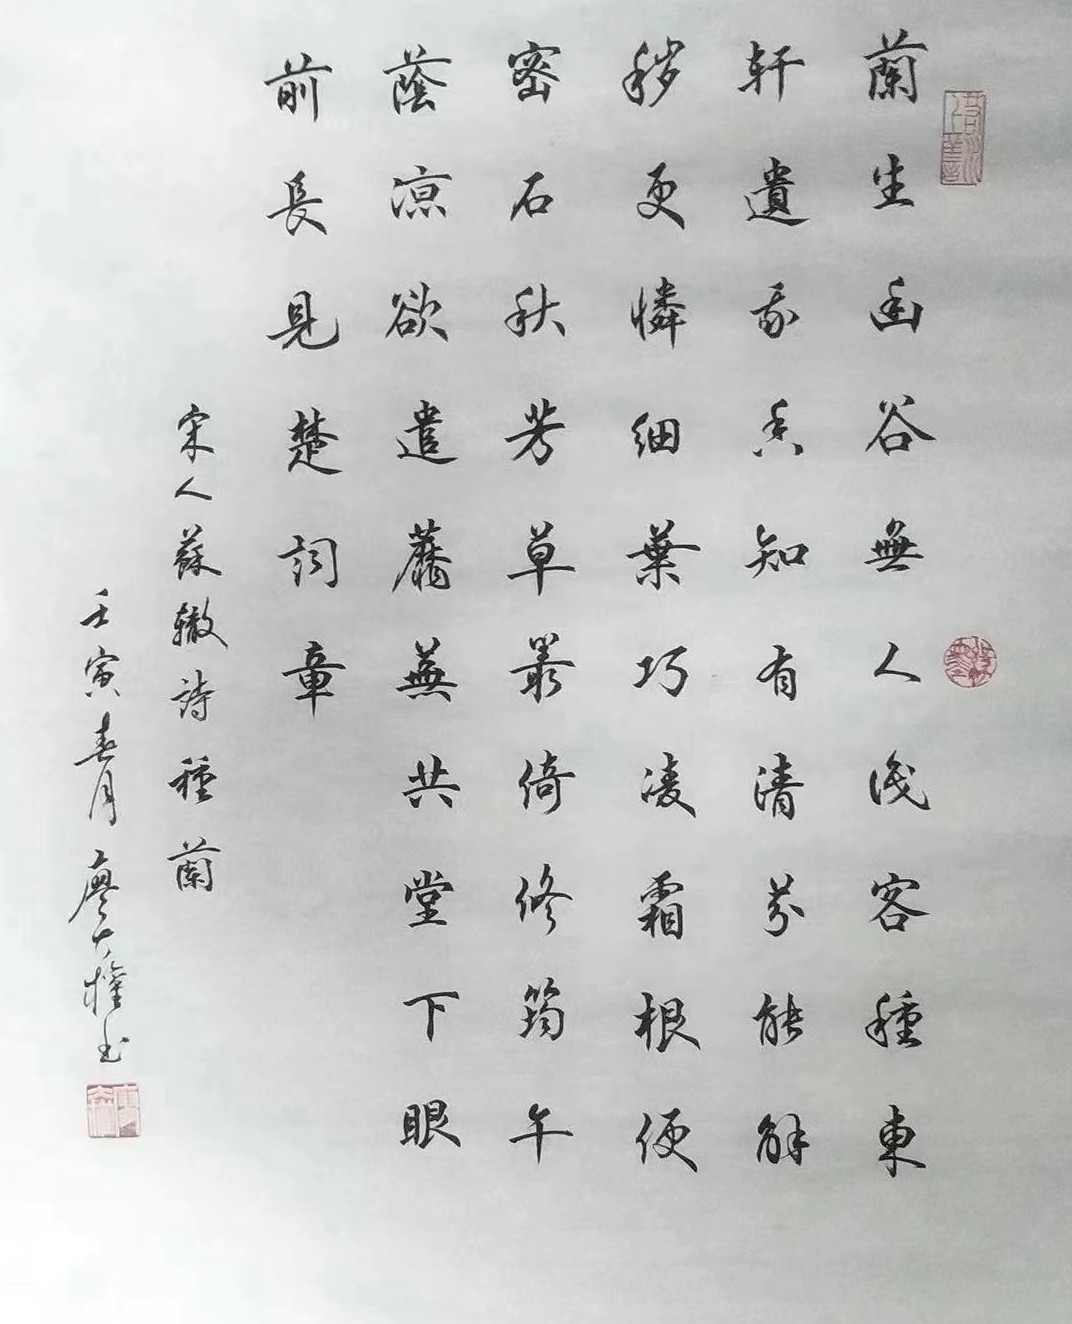 蘭生幽谷無人識客種東
軒遺我香知有清芬能解
穢更憐細葉巧凌霜根便
密石秋芳草叢倚修筠午
蔭凉欲遣蘼蕪共堂下眼
前長見楚詞章
宋人蘇轍詩種蘭
壬寅春月廖书